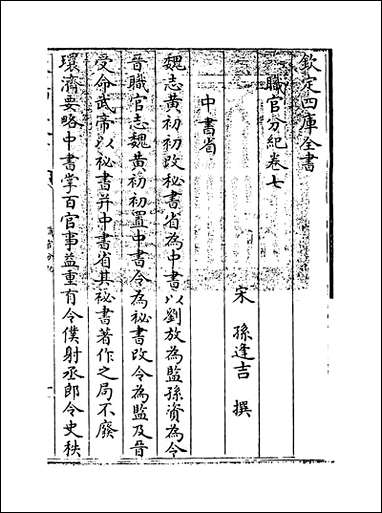 欽定四庫全書
職官分紀卷七
宋 孫逢吉 撰
中書省
魏志黃初初改秘書省為中書以劉放為監孫資為令
晉職官志魏黃初初置中書令為秘書改令為監及晉
受命武帝以秘書并中書省其秘書著作之局不廢
環濟要略中書掌百官事益重有令僕射丞郎令史秩